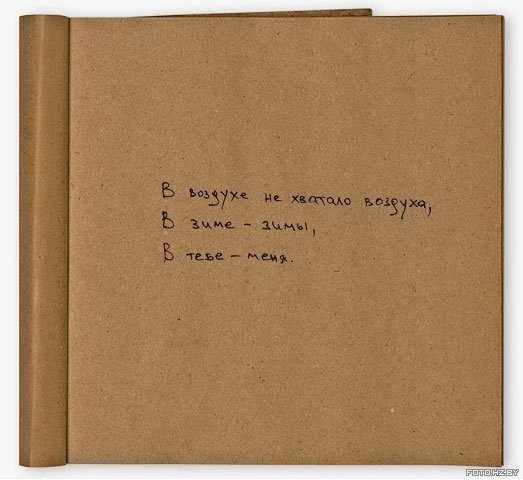 В воздухе не хватало воздуха,
В зиме – зимы,
В тебе – меня.
FOTO.HZ.BY